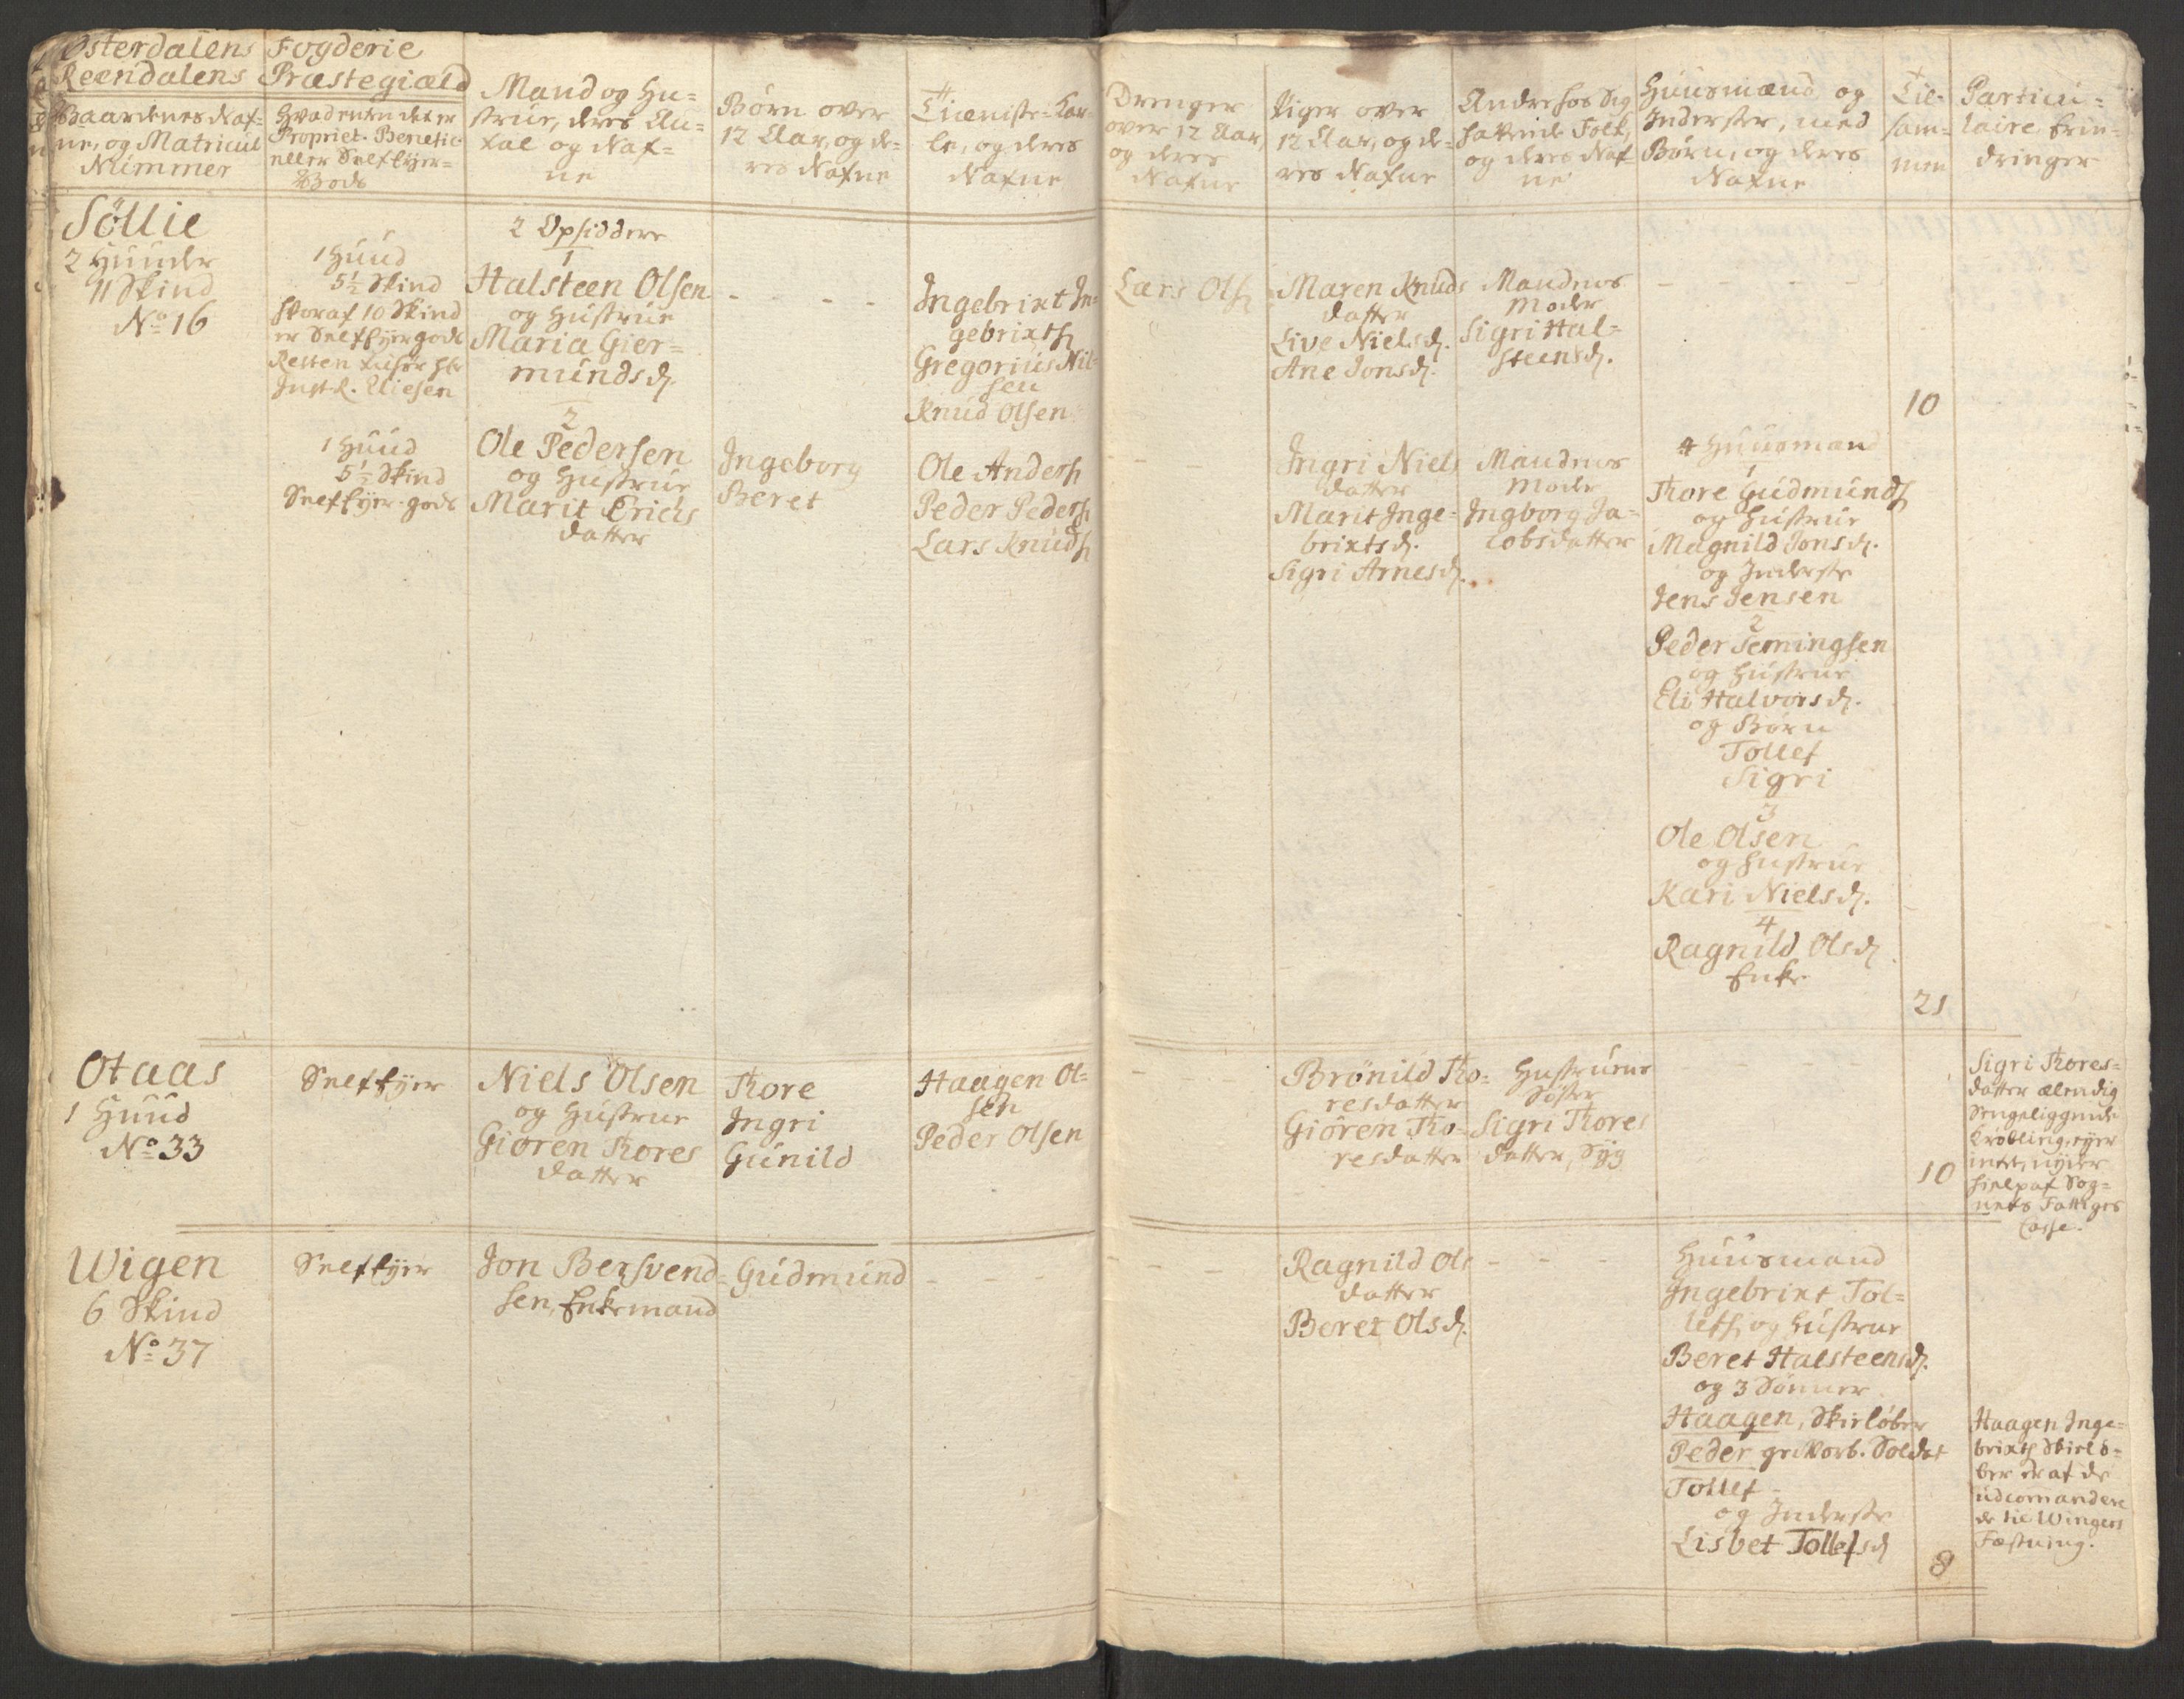 Østerdalens Fogderie
Reendalens Præstegiæld
Gaardenes Naf-
ne, og Matricul
Nummer
Hvad enten det er
Propriet. Benefic.
eller Selfeyer-
Gods
Mand og Hu-
strue, deres An-
tal og Naf-
ne
Børn over
12 Aar, og de-
res Nafne
Tieniste-Kar-
le, og deres
Nafne
Drenger
over 12 Aar,
og deres
Nafne
Piger over
12 Aar, og de-
res Nafne
Andre hos sig
havende Folk,
og deres Naf-
ne
Huusmænd og
Inderster, med
Børn, og deres
Nafne
Til-
sam-
men
Particu-
laire Erin-
dringer
Söllie
2 Huuder
11 Skind
No 16
1 Huud
5½ Skind
hvoraf 10 Skind
er Selfeyergods
Resten tilhør Hr
Inst. R. Eliesen
2 Opsiddere
1
Halsteen Olsen
og Hustrue
Maria Gier-
mundsd.
- - - -
Ingebrixt In-
gebrixts.
Gregorius Nil-
sen
Knud Olsen
Lars Ols.
Maren Knuds
datter
Live Nielsd.
Ane Jonsd.
Mandens
Moder
Sigri Hal-
steensd.
- - - - -
10
1 Huud
5½ Skind
Selfeyer-gods
2
Ole Pedersen
og Hustrue
Marit Erichs
datter
Ingeborg
Beret
Ole Anders.
Peder Peders.
Lars Knuds.
- - -
Ingri Niels
datter
Marit Inge-
brixtsd.
Sigri Arnesd.
Mandens
Moder
Ingborg Ja-
cobsdatter
4 Huusmænd
1
Tore Gudmunds.
og Hustrue
Magnild Jonsd.
og Inderste
Jens Jensen
2
Peder Semingsen
og Hustrue
Eli Halvorsd.
og Børn
Tollef
Sigri
3
Ole Olsen
og Hustrue
Kari Nielsd.
4
Ragnild Olsd.
Enke
21
Otaas
1 Huud
No 33
Selfeyer
Niels Olsen
og Hustrue
Giøren Tores
datter
Tore
Ingri
Gunild
Haagen Ol-
sen
Peder Olsen
- - -
Brönild To-
resdatter
Giören To-
resdatter
Hustruens
Søster
Sigri Tores
datter, Syg
- - -
10
Sigri Tores-
datter ælendig
Sengeliggende
Krøbling, eyer
intet, nyder
hielp af Sog-
nets Fattiges
Casse.
Wigen
6 Skind
No 37
Selfeyer
Jon Bersvend-
sen, Enkemand
Gudmund
- - - -
- - -
Ragnild Ols
datter
Beret Olsd.
- - -
Huusmand
Ingebrixt Tol-
lefs. og Hustrue
Beret Halsteensd.
og 3 Sønner
Haagen, Skieløber
Peder gevorb. Soldat
Tollef -
og Inderste
Lisbet Tollefsd.
8
Haagen Inge-
brixts. Skielø-
ber er af de
udcomandere
de til Wingers
Fæstning.